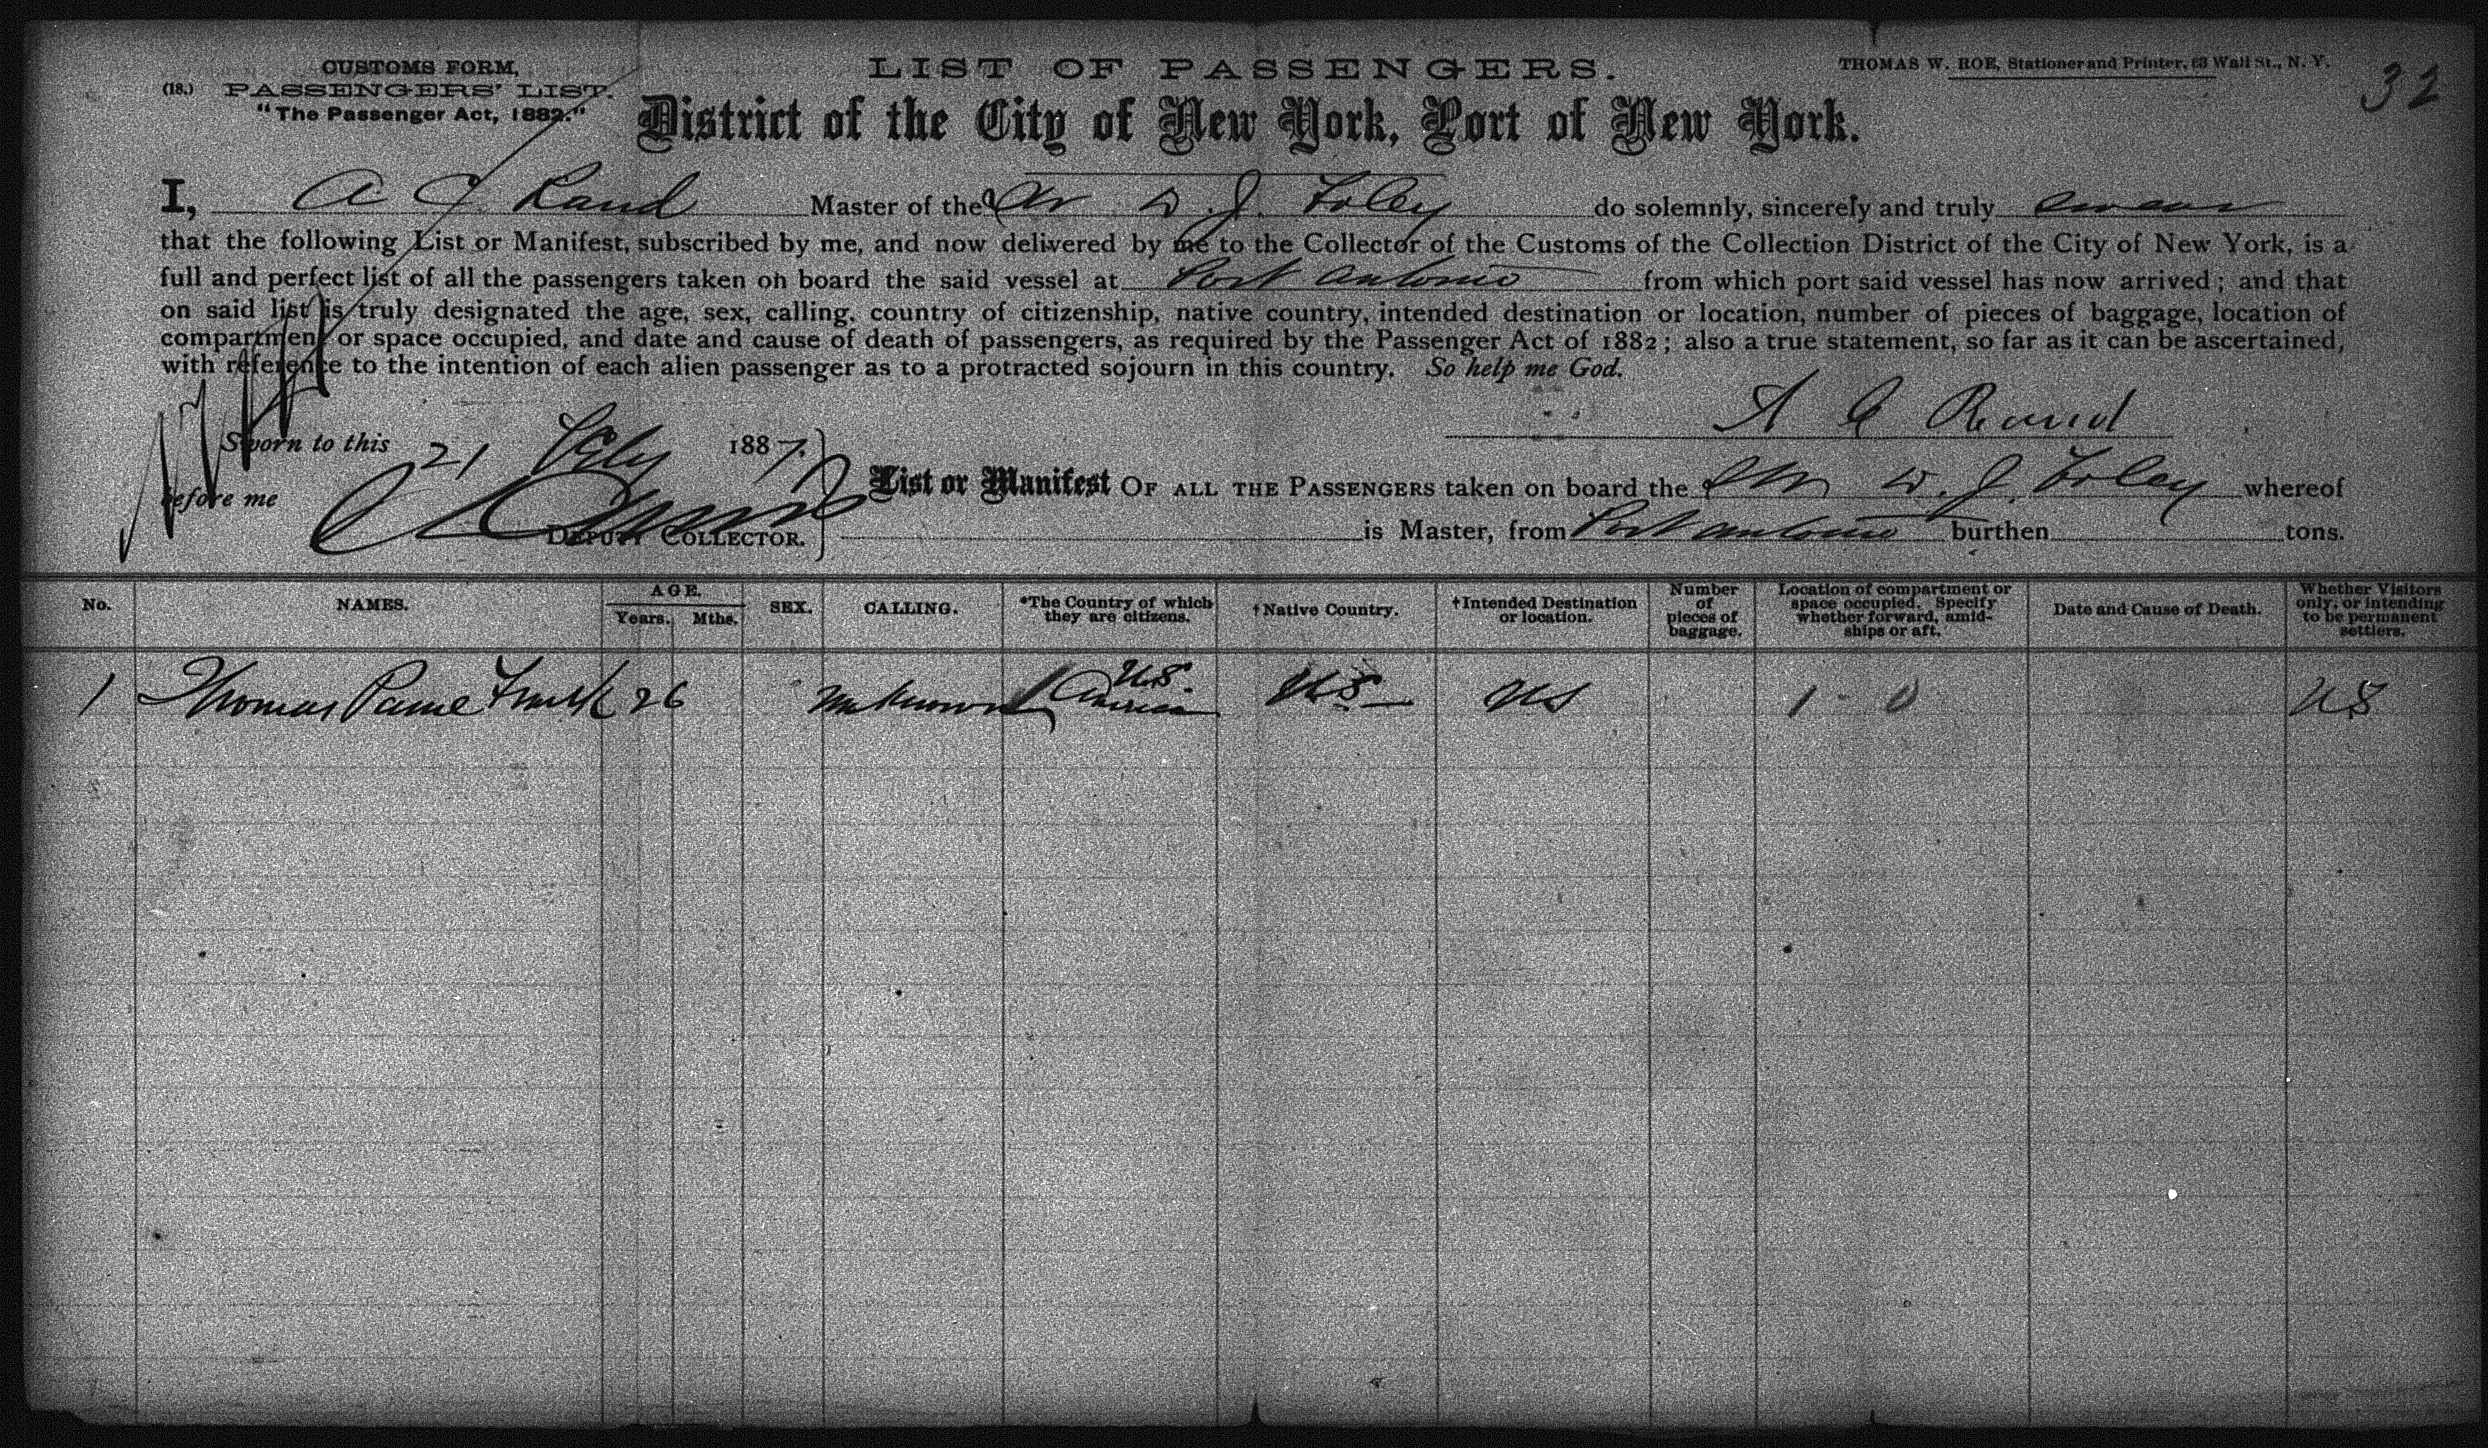 CUSTOMS FORM,
(18.) PASSENGERS' LIST.
"The Passenger Act, 1882."
LIST OF PASSENGERS.
THOMAS W. ROE, Stationer and Printer, 63 Wall St., N. Y.
32
District of the City of New York, Port of New York.
I, A Rand Master of the W. J. Foley do solemnly, sincerely and truly swear
that the following List or Manifest, subscribed by me, and now delivered by me to the Collector of the Customs of the Collection District of the City of New York, is a
full and perfect list of all the passengers taken on board the said vessel at Port Antonio from which port said vessel has now arrived; and that
on said list is truly designated the age, sex, calling, country of citizenship, native country, intended destination or location, number of pieces of baggage, location of
compartment or space occupied, and date and cause of death of passengers, as required by the Passenger Act of 1882; also a true statement, so far as it can be ascertained,
with reference to the intention of each alien passenger as to a protracted sojourn in this country. So help me God.
A Rand
Sworn to this 21 Feby 1887.
before me
DEPUTY COLLECTOR.
List or Manifest OF ALL THE PASSENGERS taken on board the W. J. Foley whereof
is Master, from Port Antonio burthen tons.
No. NAMES. AGE. Years. Mths. SEX. CALLING. *The Country of which they are citizens. †Native Country. †Intended Destination or location. Number of pieces of baggage. Location of compartment or space occupied. Specify whether forward, amidships or aft. Date and Cause of Death. Whether Visitors only, or intending to be permanent settlers.
1 Thomas 26 unknown U.S. America U.S. US 1 0 US